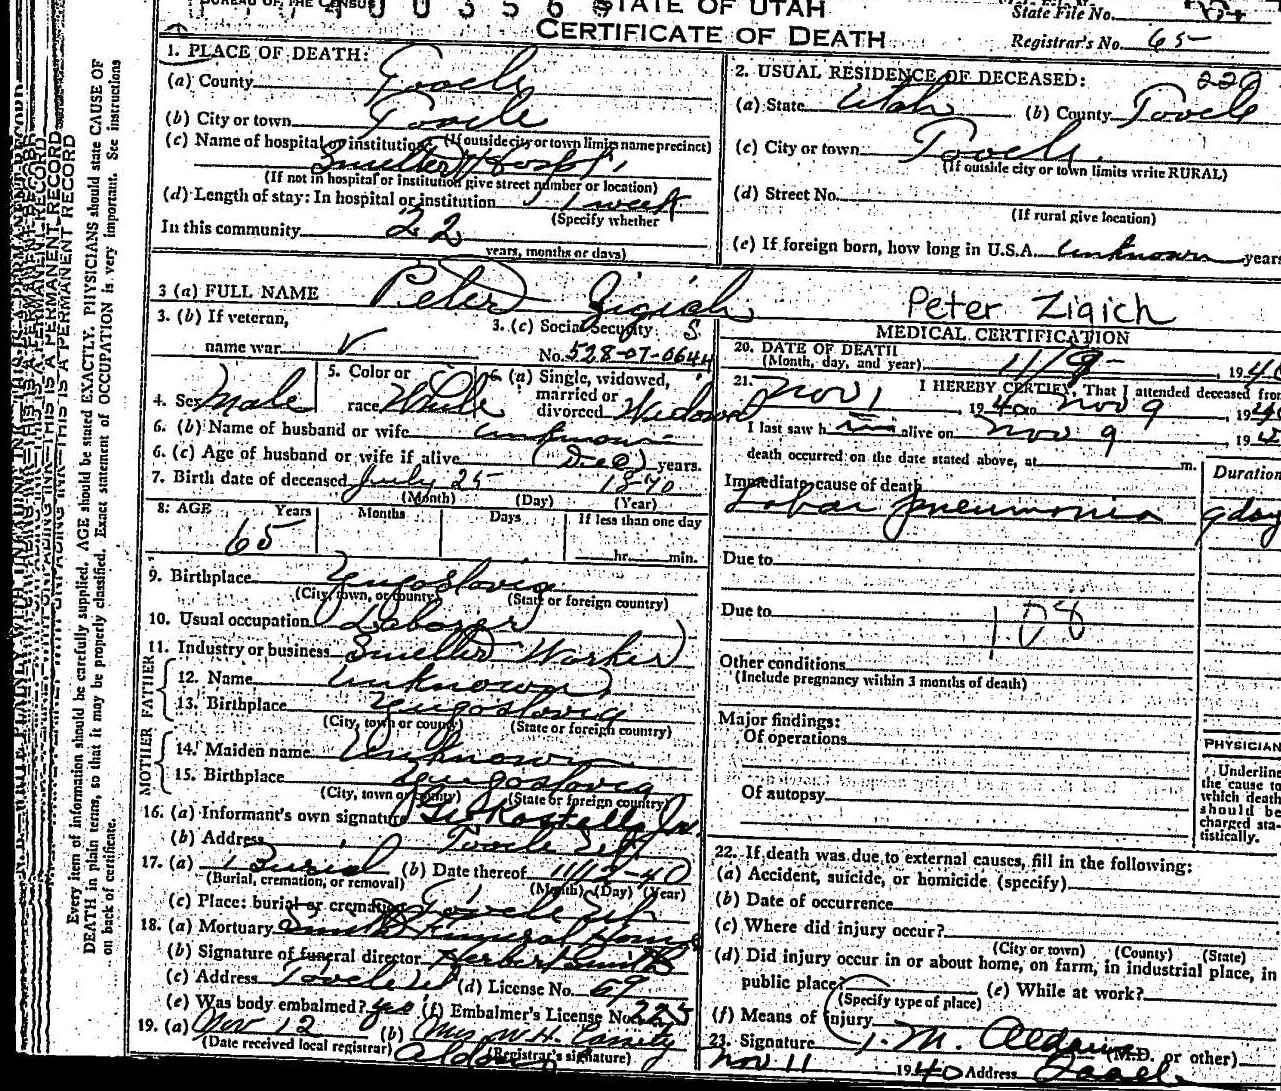 BUREAU OF THE CENSUS
STATE OF UTAH
CERTIFICATE OF DEATH
State File No.
Registrar's No. 65
1. PLACE OF DEATH:
(a) County Tooele
(b) City or town Tooele
(c) Name of hospital or institution: (If outside city or town limits name precinct)
Smelter Hospt,
(If not in hospital or institution give street number or location)
(d) Length of stay: In hospital or institution 1 week
(Specify whether
In this community 22
years, months or days)
2. USUAL RESIDENCE OF DECEASED: 229
(a) State Utah (b) County Tooele
(c) City or town Tooele.
(If outside city or town limits write RURAL)
(d) Street No.
(If rural give location)
(e) If foreign born, how long in U.S.A. unknown years
3 (a) FULL NAME Peter Zigich
Peter Zigich
3. (b) If veteran,
name war
3. (c) Social Security
No. 528-07-0644
4. Sex Male
5. Color or
race White
6. (a) Single, widowed,
married or
divorced Widowed
6. (b) Name of husband or wife unknown
6. (c) Age of husband or wife if alive (Dec) years.
7. Birth date of deceased July 25 1870
(Month) (Day) (Year)
8. AGE Years Months Days If less than one day
65 hr. min.
9. Birthplace Yugoslovia
(City, town, or county) (State or foreign country)
10. Usual occupation Laborer
11. Industry or business Smelter Worker
FATHER
12. Name Unknown
13. Birthplace Yugoslovia
(City, town or county) (State or foreign country)
MOTHER
14. Maiden name Unknown
15. Birthplace Yugoslovia
(City, town or county) (State or foreign country)
16. (a) Informant's own signature
(b) Address Tooele Ut
17. (a) Burial (b) Date thereof 11/12-40
(Burial, cremation, or removal) (Month) (Day) (Year)
(c) Place: burial or cremation Tooele Ut
18. (a) Mortuary Smith Funeral Home
(b) Signature of funeral director Herbert Smith
(c) Address Tooele Ut (d) License No. 69
(e) Was body embalmed? yes (f) Embalmer's License No. 225
19. (a) Nov 12 (b) Mrs. W.H. Cassity
(Date received local registrar) (Registrar's signature)
MEDICAL CERTIFICATION
20. DATE OF DEATH
(Month, day, and year) 11/9- , 1940
21. I HEREBY CERTIFY, That I attended deceased from
Nov 1, 1940 to Nov 9, 1940
I last saw him alive on Nov 9, 19
death occurred on the date stated above, at m.
Immediate cause of death Duration
Lobar pneumonia 9 day
Due to
Due to 108
Other conditions
(Include pregnancy within 3 months of death)
Major findings:
Of operations
Of autopsy
PHYSICIAN
Underline
the cause to
which death
should be
charged sta-
tistically.
22. If death was due to external causes, fill in the following:
(a) Accident, suicide, or homicide (specify)
(b) Date of occurrence
(c) Where did injury occur?
(City or town) (County) (State)
(d) Did injury occur in or about home, on farm, in industrial place, in
public place? (e) While at work?
(Specify type of place)
(f) Means of injury
23. Signature (M.D. or other)
Nov 11 1940 Address
THIS IS A PERMANENT RECORD
Every item of information should be carefully supplied. AGE should be stated EXACTLY. PHYSICIANS should state CAUSE OF
DEATH in plain terms, so that it may be properly classified. Exact statement of OCCUPATION is very important. See instructions
on back of certificate.